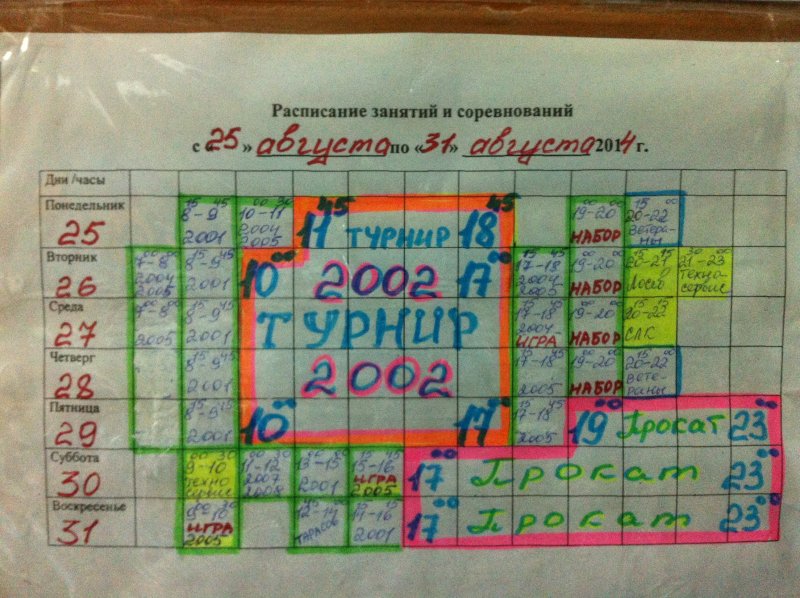 Расписание занятий и соревнований
с «25» августа по «31» августа 2014 г.
Дни /часы
Понедельник 25
8¹⁵-9⁴⁵ 2001
10⁰⁰-11³⁰ 2004 2005
11⁴⁵ ТУРНИР 18⁴⁵
19⁰⁰-20⁰⁰ НАБОР
20¹⁵-22⁰⁰ Ветераны
Вторник 26
7⁰⁰-8⁰⁰ 2004 2005
8¹⁵-9⁴⁵ 2001
10⁰⁰ 2002 17⁰⁰
17¹⁵-18⁴⁵ 2004 2005
19⁰⁰-20⁰⁰ НАБОР
20¹⁵-21¹⁵ Лосев
21³⁰-23⁰⁰ Техносервис
Среда 27
7⁰⁰-8⁰⁰ 2005
8¹⁵-9⁴⁵ 2001
ТУРНИР
17¹⁵-18⁴⁵ 2004 ИГРА
19⁰⁰-20⁰⁰ НАБОР
СЛК
Четверг 28
8¹⁵-9⁴⁵ 2001
2002
17¹⁵-18⁴⁵ 2005
19⁰⁰-20⁰⁰ НАБОР
20¹⁵-22⁰⁰ Ветераны
Пятница 29
8¹⁵-9⁴⁵ 2001
10⁰⁰ 17⁰⁰
17¹⁵-18⁴⁵ 2005
19⁰⁰ Прокат 23⁰⁰
Суббота 30
9⁰⁰-10³⁰ Техносервис
11-12 2007 2008
13-15 2001
15-16 ИГРА 2005
17⁰⁰ Прокат 23⁰⁰
Воскресенье 31
ИГРА 2005
12-14 ТАРАСОВ
14-16 2001
17⁰⁰ Прокат 23⁰⁰